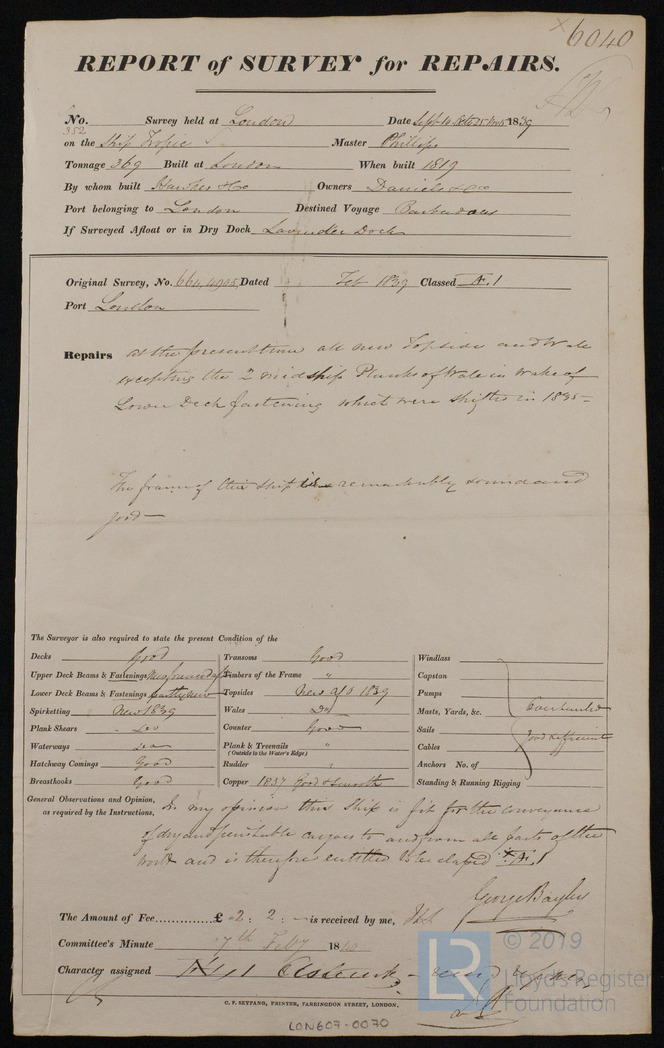 6040
REPORT of SURVEY for REPAIRS.
No. 352 Survey held at London Date Sept 1839
on the Ship Tropic Master Phillips
Tonnage 369 Built at London When built 1819
By whom built Hawkes & Co Owners Daniels & Co
Port belonging to London Destined Voyage Barbadoes
If Surveyed Afloat or in Dry Dock Lavender Dock
Original Survey, No. 664, 4905, Dated Feb 1839 Classed Æ.1
Port London
Repairs at the present time all new Topsides and Wale
excepting the 2 midship Planks of Wale in wake of
Lower Deck fastening which were shifted in 1835 –
The frame of this Ship is remarkably sound and
good –
The Surveyor is also required to state the present Condition of the
Decks Good
Upper Deck Beams & Fastenings
Lower Deck Beams & Fastenings partly new
Spirketting New 1839
Plank Shears
Waterways
Hatchway Comings Good
Breasthooks Good
Transoms Good
Timbers of the Frame "
Topsides New 1839
Wales Do
Counter Good
Plank & Treenails "
(Outside to the Water's Edge)
Rudder "
Copper 1837 Good & Smooth
Windlass
Capstan
Pumps
Masts, Yards, &c.
Sails
Cables
Anchors No. of
Standing & Running Rigging
Overhauled
Good & efficient
General Observations and Opinion,
as required by the Instructions,
In my opinion this Ship is fit for the conveyance
of dry and perishable cargoes to and from all parts of the
World and is therefore entitled to be classed Æ 1
George Bayley
The Amount of Fee............... £ 2 : 2 : – is received by me,
Committee's Minute 7th Feby 1840
Character assigned
C. F. SEYFANG, PRINTER, FARRINGDON STREET, LONDON.
LON607-0070
© 2019
LR
Lloyd's Register
Foundation